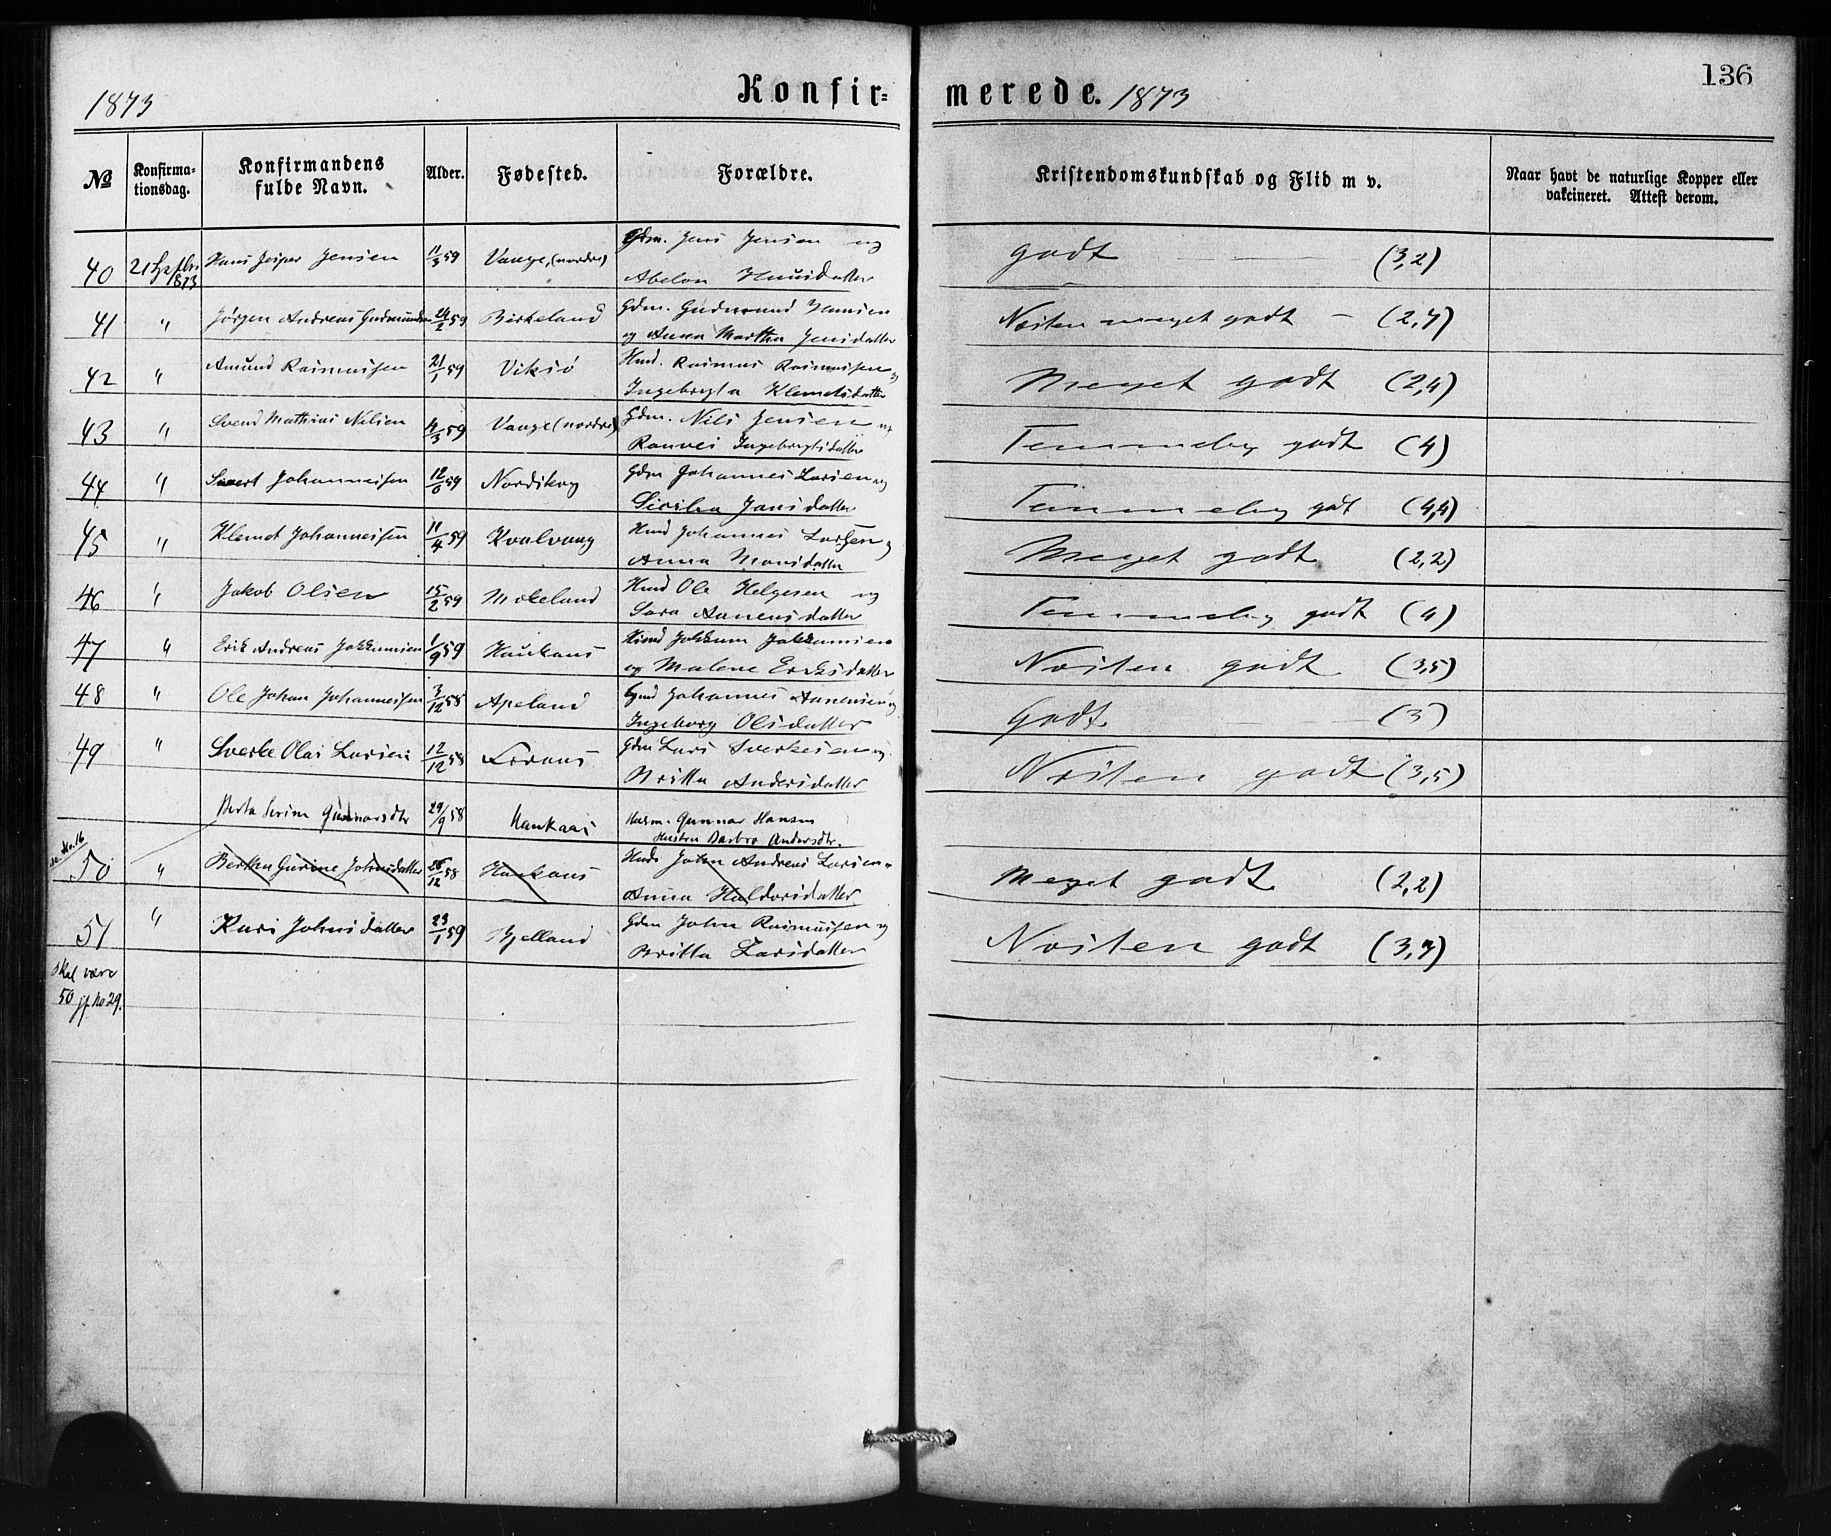 1873 Konfir= merede. 1873 136
No Konfirma- tionsdag. Konfirmandens fulde Navn. Alder. Fødested. Forældre. Kristendomskundskab og Flid m v. Naar havt de naturlige Kopper eller vakcineret. Attest derom.
40 21 1873 Hans Jesper Jensen 11/3 59 Vange, (nordre) Gdm. Jens Jensen og godt (3,2)
Abelon Hansdatter
41 " Jørgen Andreas Gudmundsen 24/2 59 Birkeland Gdm. Gudmund Hansen Næsten meget godt – (2,7)
og Anna Martha Jensdatter
42 " Amund Rasmussen 21/1 59 Viksö Hmd. Rasmus Rasmussen og Meget godt (2,4)
Ingebregta Klemetsdatter
43 " Svend Mathias Nilsen 4/3 59 Vange (nordre) Gdm. Nils Jensen og Temmelig godt (4)
Ranvei Ingebregtsdatter
44 " Sivert Johannessen 12/6 59 Nordskog Gdm Johannes Larsen og Temmelig godt (4,4)
Sicilia Jansdatter
45 " Klemet Johannessen 11/4 59 Kvalvaag Hmd Johannes Larsen og Meget godt (2,2)
Anna Monsdatter
46 " Jakob Olsen 15/2 59 Mokeland Hmd Ole Helgesen og Temmelig godt (4)
Sara Aanensdatter
47 " Erik Andreas Jokkumsen 1/9 59 Haukaas Hmd Jokkum Jokkumsen Næsten godt (3,5)
og Malene Eriksdatter
48 " Ole Johan Johannessen 3/12 58 Apeland Gmd Johannes Aanensen og Godt (3)
Ingeborg Olsdatter
49 " Sverke Olai Larsen 12/12 58 Gdm Lars Sverkesen og Næsten godt (3,5)
Britta Andersdatter
Berta Serine Gunnarsdtr 29/9 58 Haukaas Husm. Gunnar Hansen
Hustru Barbro Andersdtr.
No. 16
50 " Bertha Gurine Johnsdatter 28/12 58 Haukaas Hmd John Andreas Larsen Meget godt (2,2)
Anna Haldorsdatter
51 " Kari Johnsdatter 23/1 59 Bjelland Gdm John Rasmussen og Næsten godt (3,7)
Britta Larsdatter
skal være
50 jf. No 29.